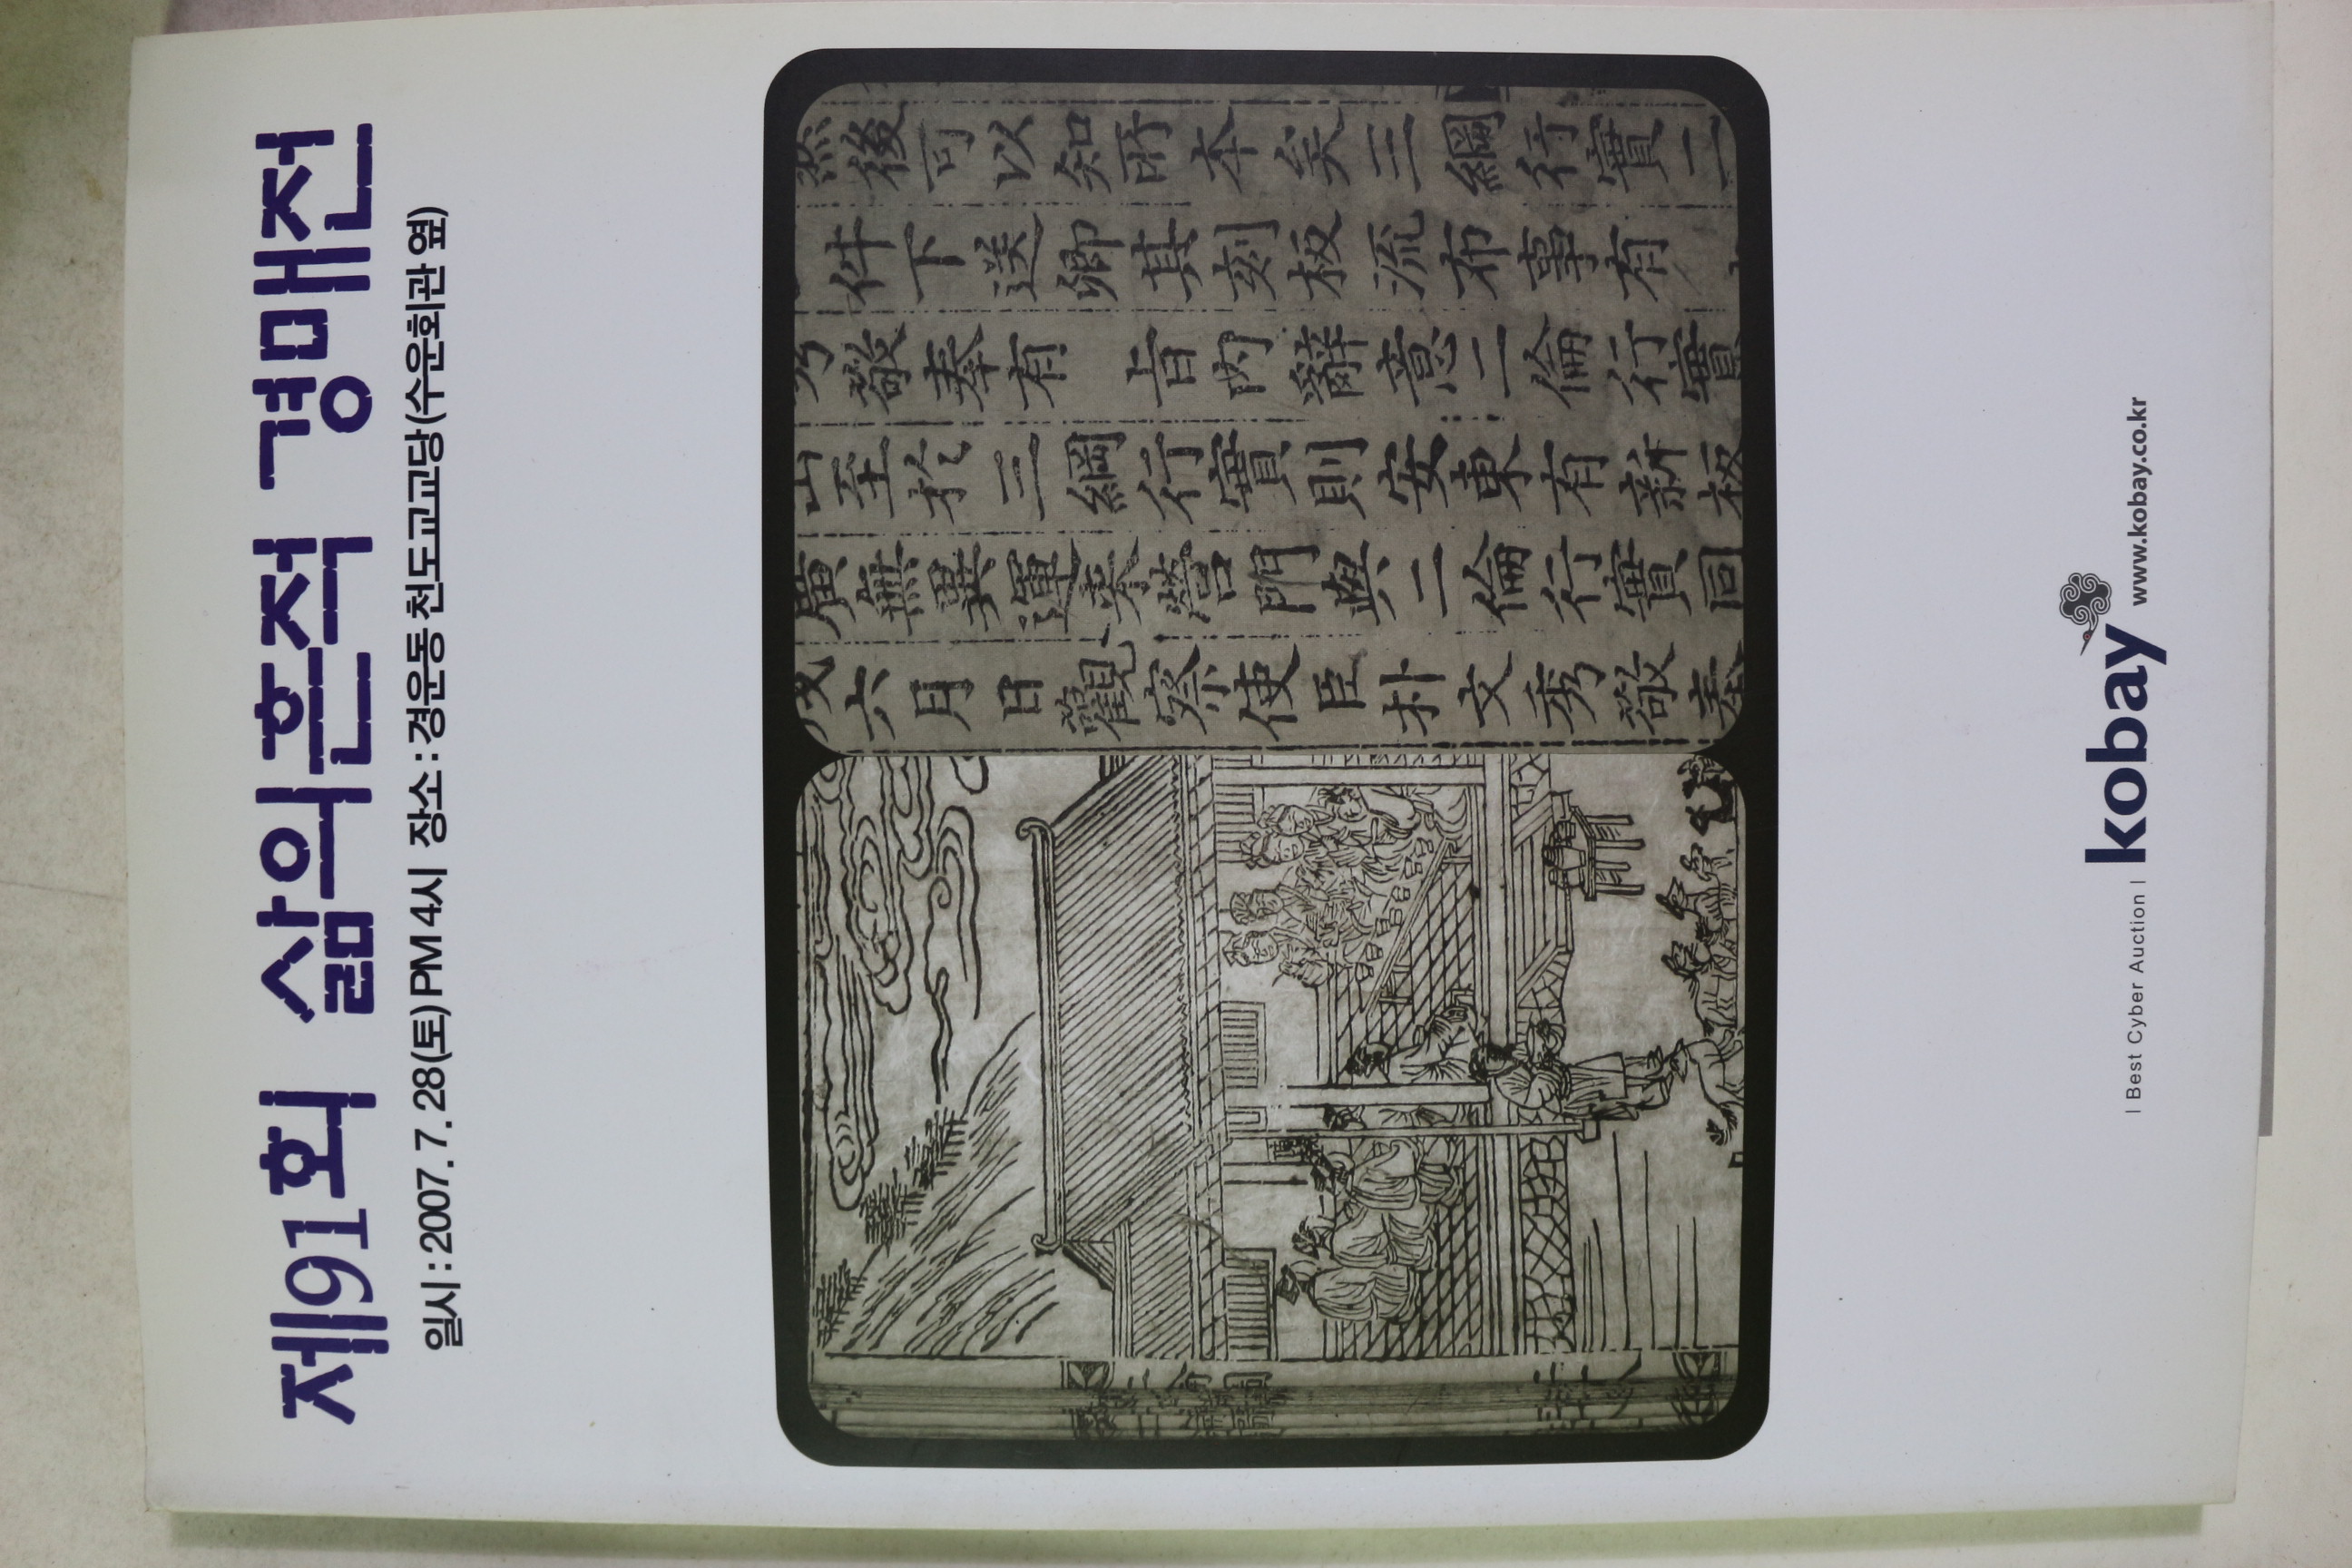 제91회 삶의흔적 경매전
일시 : 2007. 7. 28(토) PM 4시 장소 : 경운동 천도교교당(수운회관 옆)
然後可以知所本矣三綱行實二
件下送卿其刻板流布事有
敬奉有 旨內辭意二倫行實
至於三綱行實則安東有新板
廣無異運來營門與二倫行實同
六月日觀察使臣朴文秀敬奉
| Best Cyber Auction | kobay www.kobay.co.kr